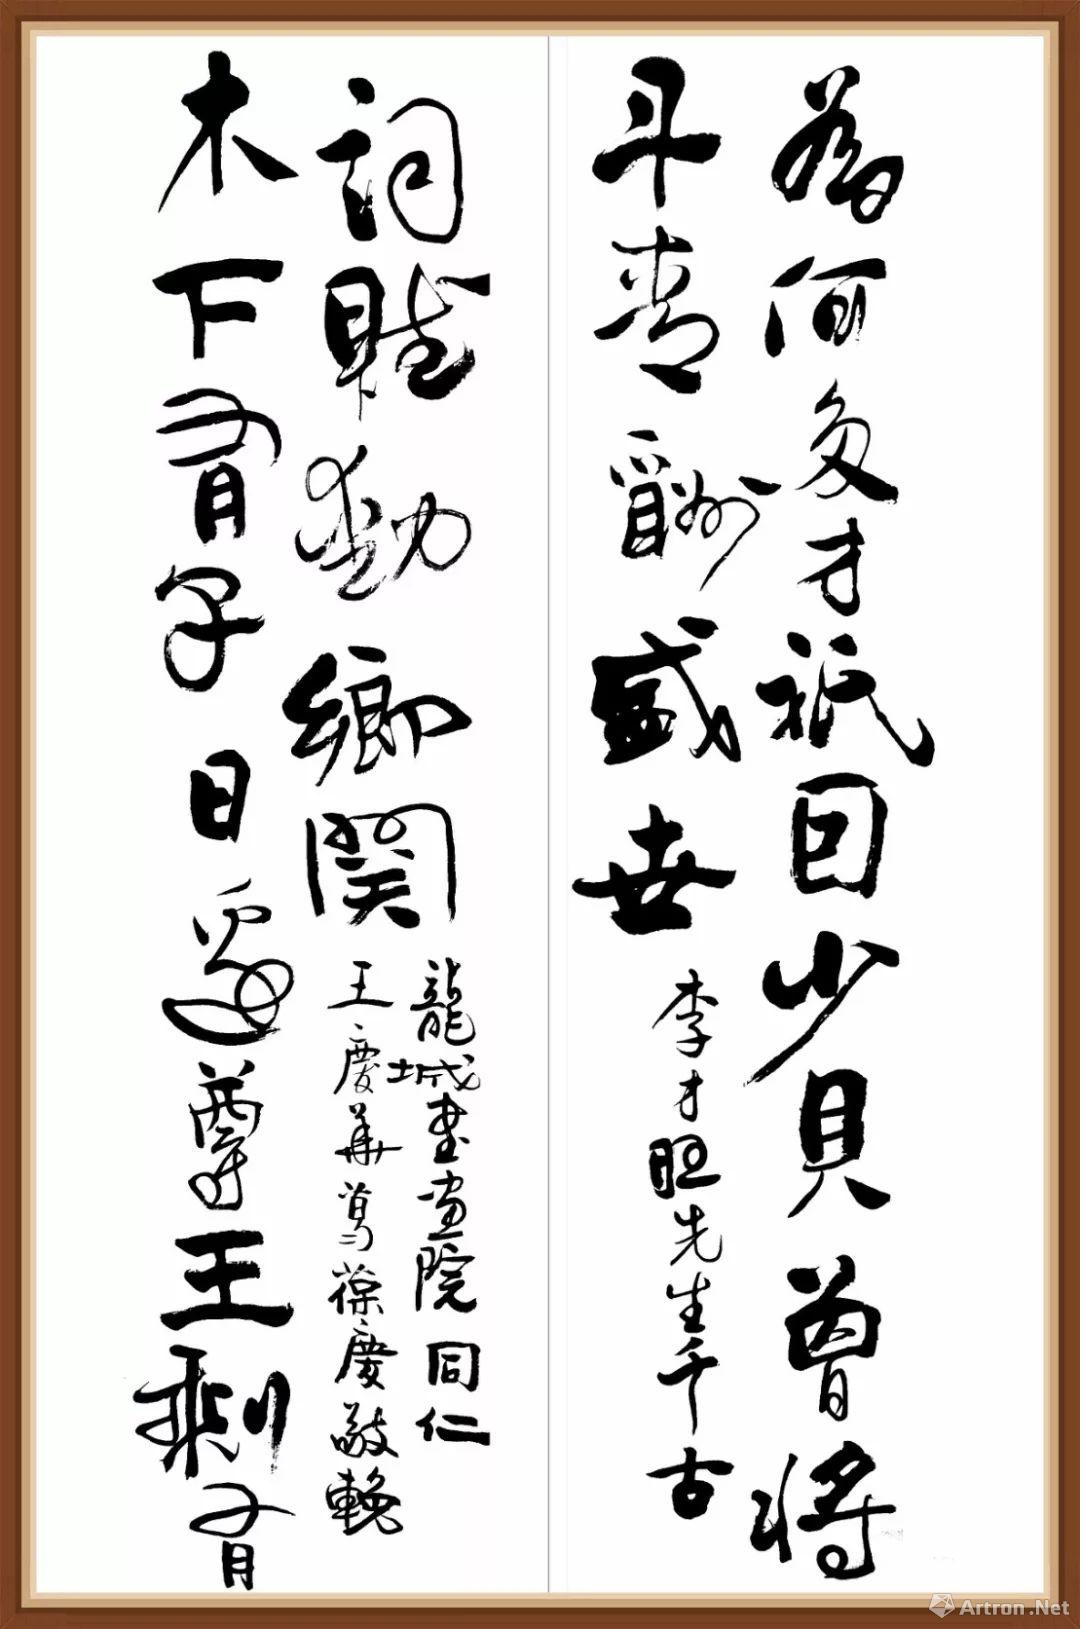 為何多才祇因少貝曾將
斗酬盛世
李才旺先生千古
木下有子日邊尊王剩有
詞賦動鄉關
龍城書畫院同仁
王慶華葛葆慶敬輓
Artron.Net